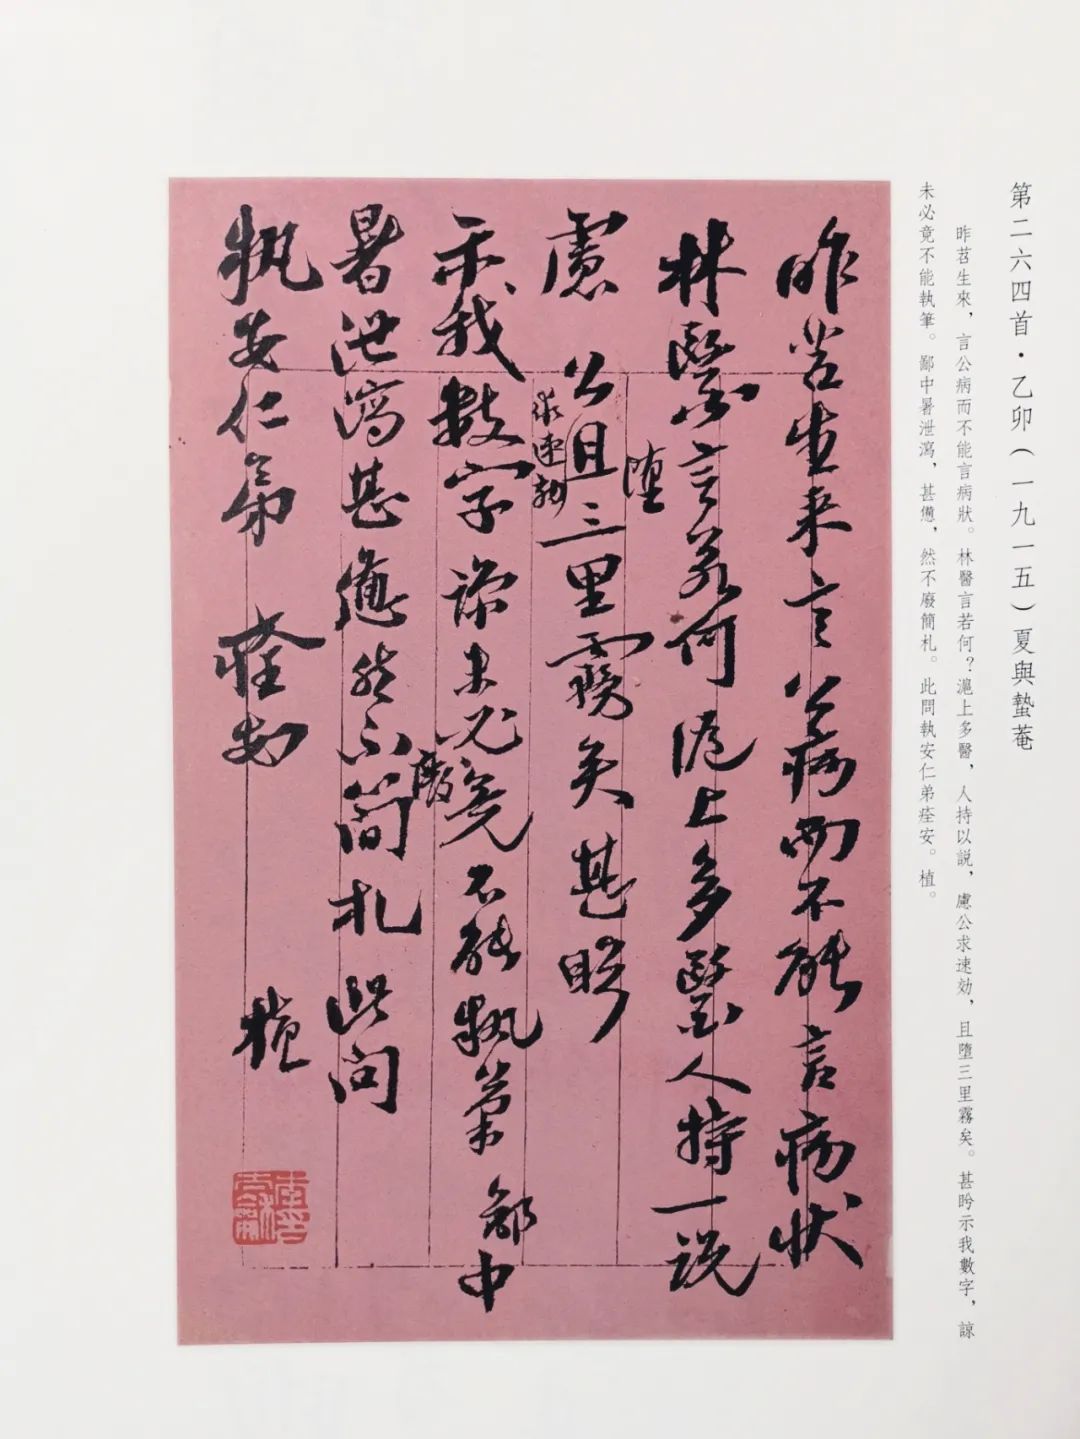 第二六四首·乙卯（一九一五）夏與蟄菴
昨苕生來，言公病而不能言病狀。林醫言若何？滬上多醫，人持以説，慮公求速効，且墮三里霧矣。甚盻示我數字，諒
未必竟不能執筆。鄙中暑泄瀉，甚憊，然不廢簡札。此問執安仁弟痊安。植。
昨苕生来言公病而不能言病狀
林醫言若何滬上多醫人持一説
慮公求速効且墮三里霧矣甚盻
示我數字諒未必竟不能執筆鄙中
暑泄瀉甚憊然不廢簡札此問
執安仁弟痊安植